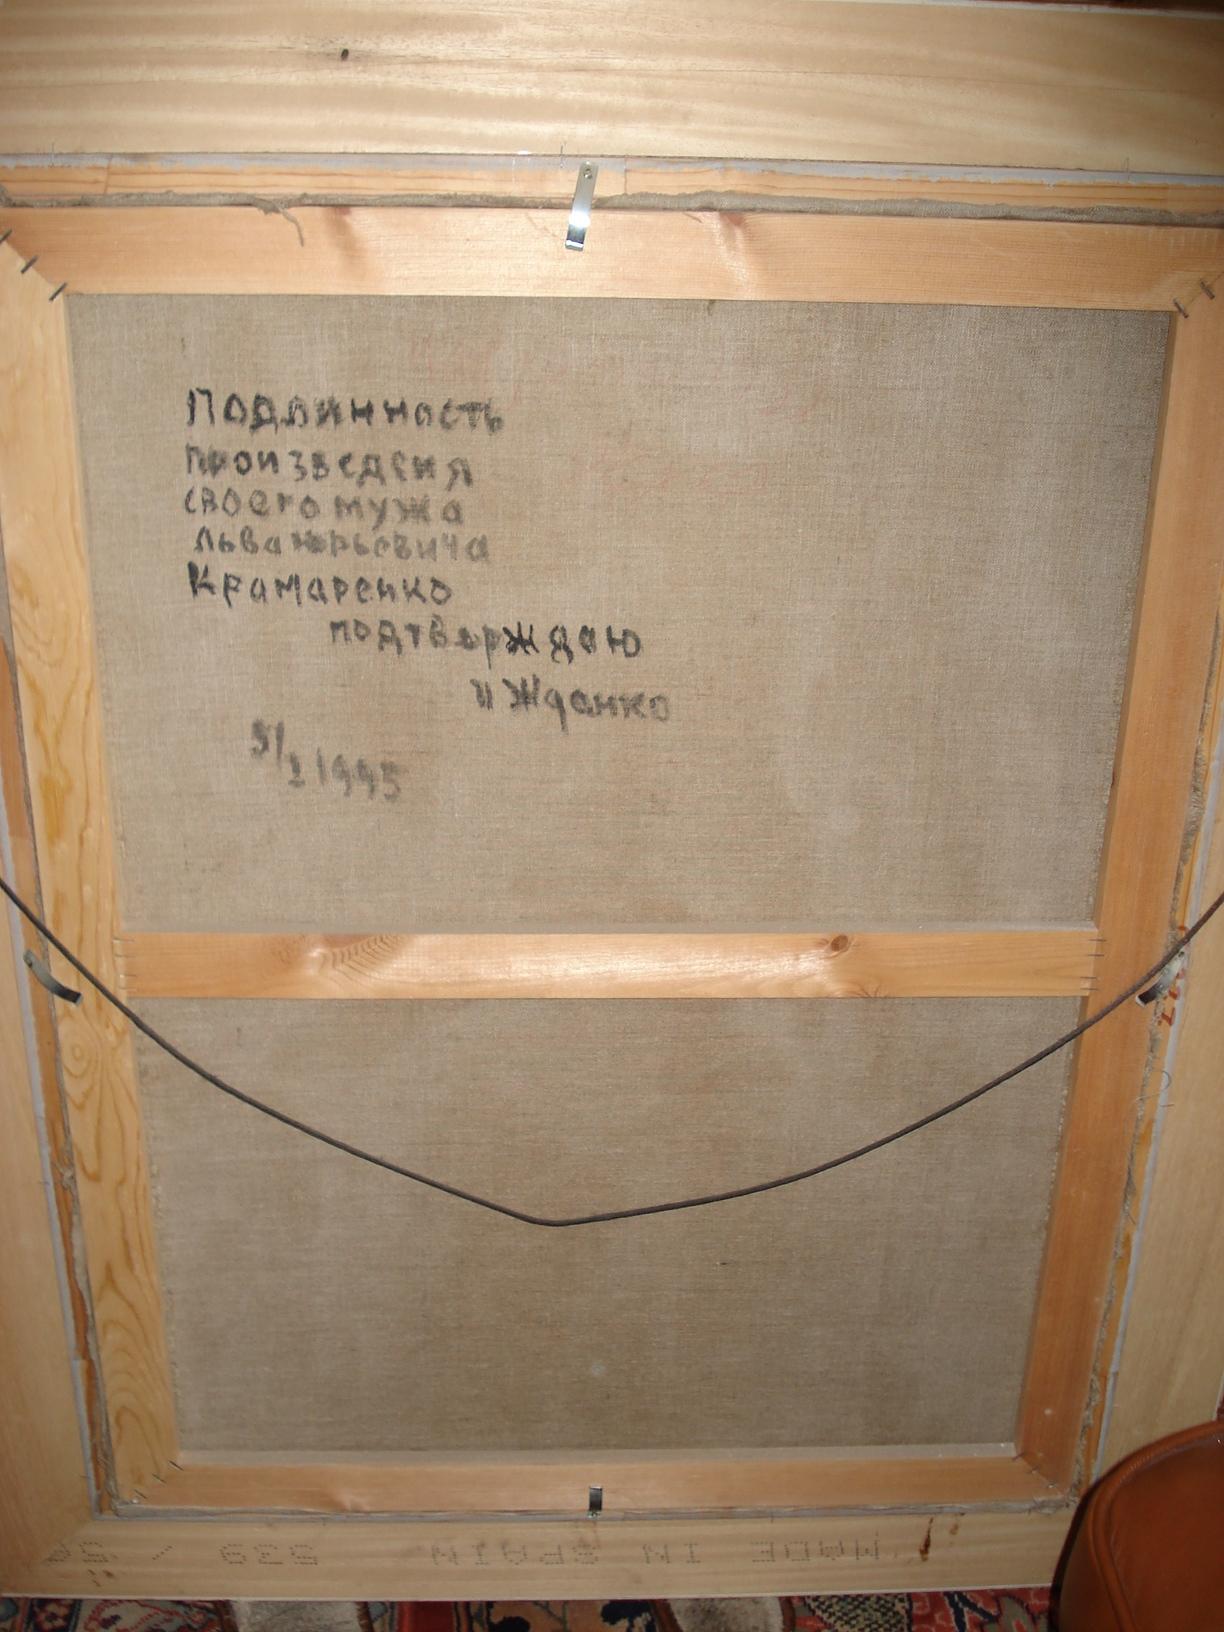 Подлинность
произведения
своего мужа
Льва Юрьевича
Крамаренко
подтверждаю
И Жданко
5/I 1995
MADE IN SPAIN 539 /